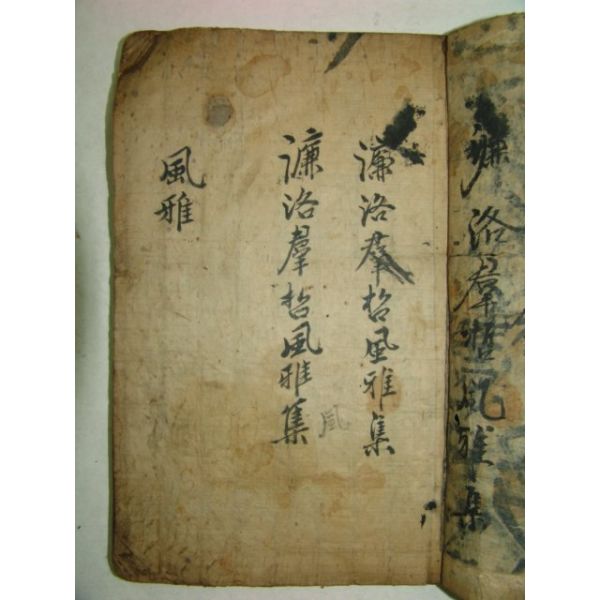 濂洛羣哲風雅集
濂洛羣哲風雅集
濂洛羣哲風雅集
風
風雅